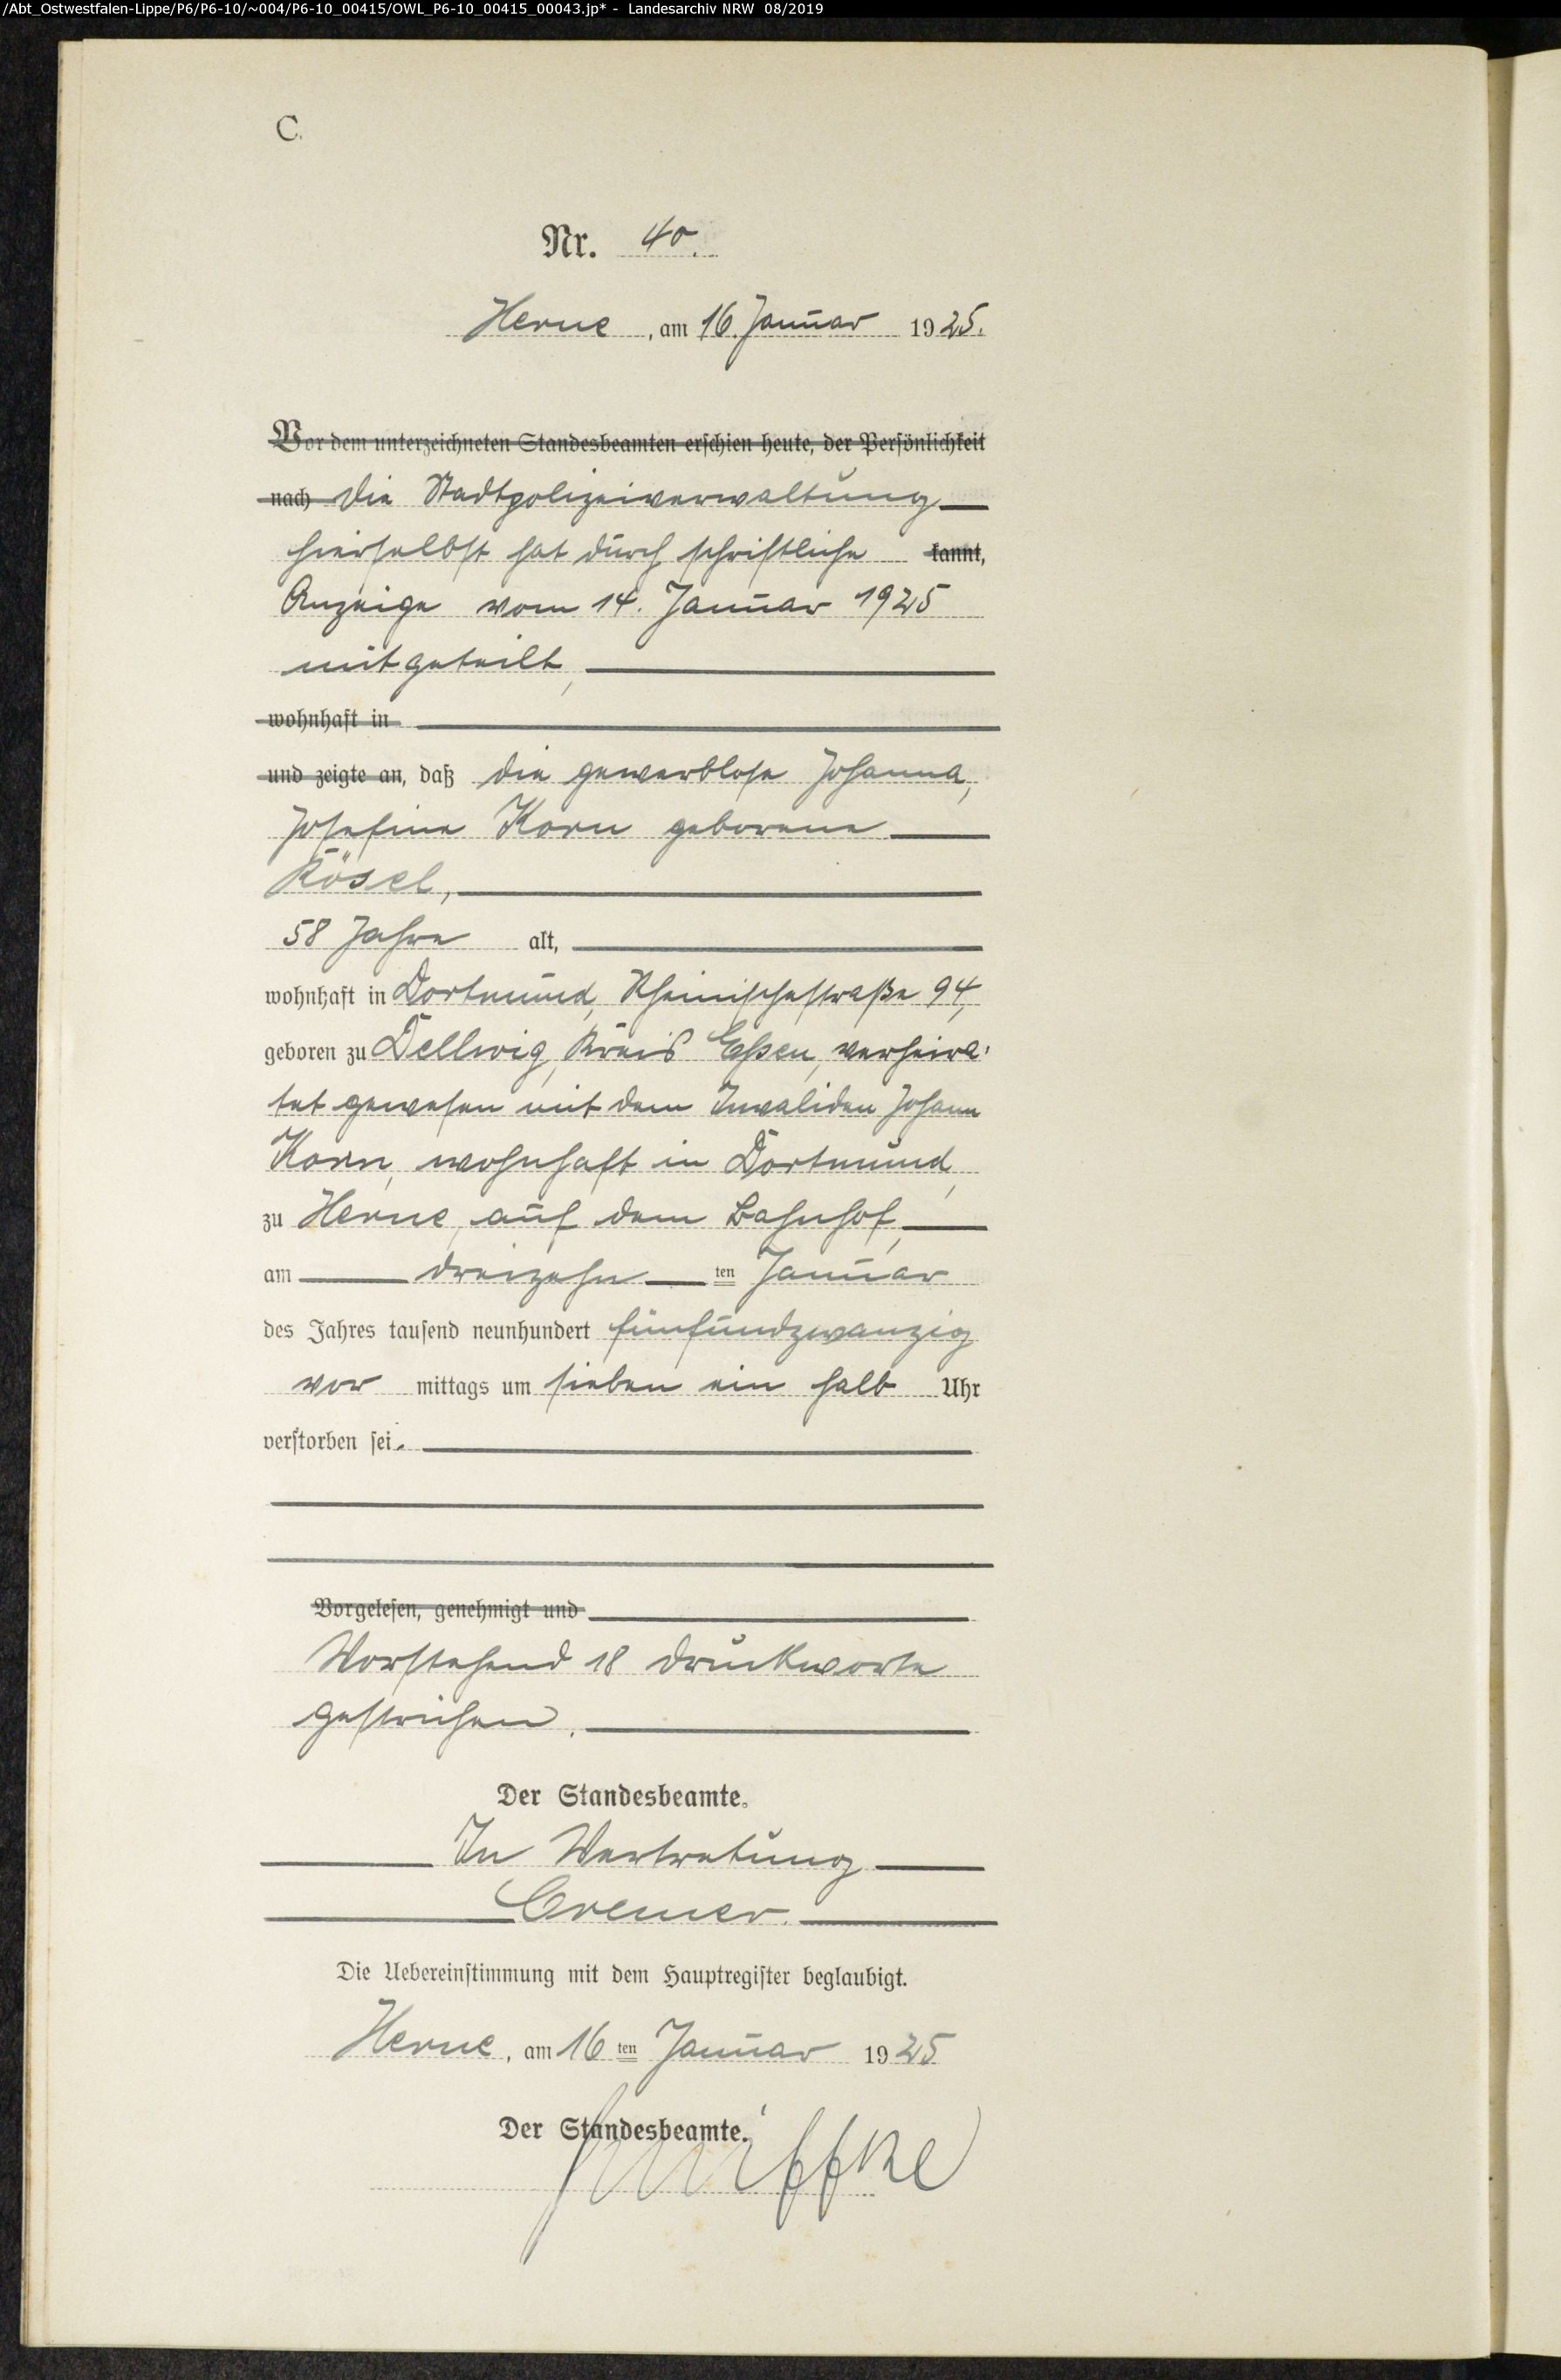 /Abt_Ostwestfalen-Lippe/P6/P6-10/~004/P6-10_00415/OWL_P6-10_00415_00043.jp* - Landesarchiv NRW 08/2019
C.
Nr. 40.
Herne, am 16. Januar 1925.
Vor dem unterzeichneten Standesbeamten erschien heute, der Persönlichkeit
nach die Stadtpolizeiverwaltung
hierselbst hat durch schriftliche kannt,
Anzeige vom 14. Januar 1925
mitgeteilt,
wohnhaft in
und zeigte an, daß die gewerblose Johanna,
Josefine Korn geborene
Rösel,
58 Jahre alt,
wohnhaft in Dortmund, Rheinischestraße 94,
geboren zu Dellwig, Kreis Essen, verheira-
tet gewesen mit dem Invaliden Johann
Korn, wohnhaft in Dortmund,
zu Herne, auf dem Bahnhof,
am dreizehn ten Januar
des Jahres tausend neunhundert fünfundzwanzig
vor mittags um sieben ein halb Uhr
verstorben sei.
Vorgelesen, genehmigt und
Vorstehend 18 Druckworte
gestrichen.
Der Standesbeamte.
In Vertretung
Cremer.
Die Uebereinstimmung mit dem Hauptregister beglaubigt.
Herne, am 16 ten Januar 1925
Der Standesbeamte.